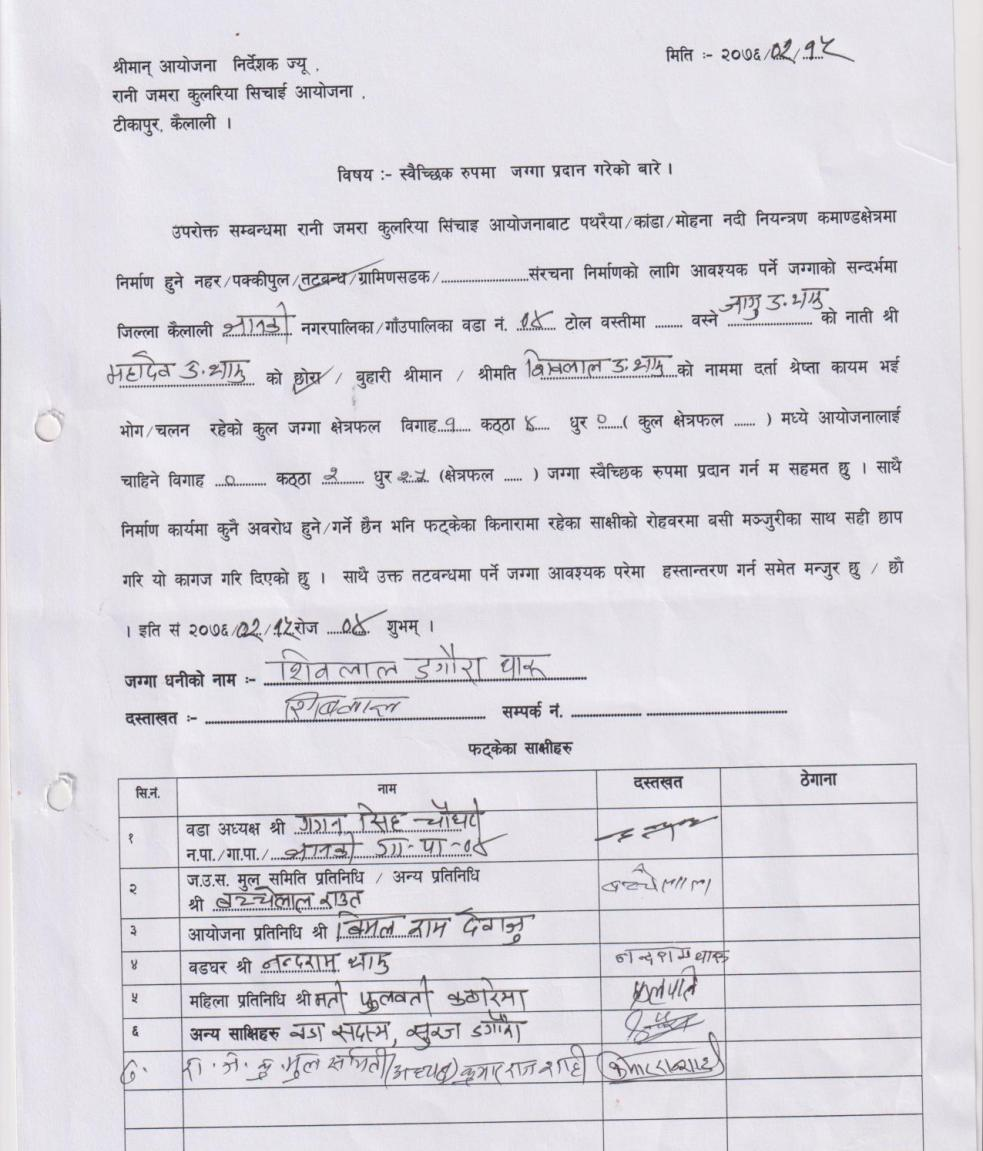 मिति :- २०७६/02/१५
श्रीमान् आयोजना निर्देशक ज्यू ,
रानी जमरा कुलरिया सिचाई आयोजना ,
टीकापुर, कैलाली ।
विषय :- स्वैच्छिक रुपमा जग्गा प्रदान गरेको बारे ।
उपरोक्त सम्बन्धमा रानी जमरा कुलरिया सिंचाइ आयोजनाबाट पथरैया/कांडा/मोहना नदी नियन्त्रण कमाण्डक्षेत्रमा
निर्माण हुने नहर/पक्कीपुल/तटबन्ध/ग्रामिणसडक/....................संरचना निर्माणको लागि आवश्यक पर्ने जग्गाको सन्दर्भमा
जिल्ला कैलाली जानकी नगरपालिका/गाँउपालिका वडा नं. ०४ टोल वस्तीमा ........ वस्ने जागु ड. थारु को नाती श्री
महादेव ड. थारु को छोरा / बुहारी श्रीमान / श्रीमति शिवलाल ड. थारु को नाममा दर्ता श्रेष्ता कायम भई
भोग/चलन रहेको कुल जग्गा क्षेत्रफल विगाह १ कठ्ठा ४ धुर ० ( कुल क्षेत्रफल ...... ) मध्ये आयोजनालाई
चाहिने विगाह ० कठ्ठा २ धुर (क्षेत्रफल ...... ) जग्गा स्वैच्छिक रुपमा प्रदान गर्न म सहमत छु । साथै
निर्माण कार्यमा कुनै अवरोध हुने/गर्ने छैन भनि फट्केका किनारामा रहेका साक्षीको रोहवरमा बसी मञ्जुरीका साथ सही छाप
गरि यो कागज गरि दिएको छु । साथै उक्त तटवन्धमा पर्ने जग्गा आवश्यक परेमा हस्तान्तरण गर्न समेत मन्जुर छु / छौ
। इति सं २०७६/02/१५रोज ०४ शुभम् ।
जग्गा धनीको नाम :- शिवलाल डगौरा थारू
दस्ताखत :- शिवलाल सम्पर्क नं. ........................................
फट्केका साक्षीहरु
सि.नं. नाम दस्तखत ठेगाना
१ वडा अध्यक्ष श्री गगन सिंह चौधरी
न.पा./गा.पा./ जानकी गा-पा-०४
२ ज.उ.स. मुल समिति प्रतिनिधि / अन्य प्रतिनिधि
श्री बच्चेलाल राउत बच्चेलाल
३ आयोजना प्रतिनिधि श्री विमल राम देवाजु
४ वडघर श्री नन्दराम थारु नन्दराम थारू
५ महिला प्रतिनिधि श्रीमती फुलवती कठरिया फुलपति
६ अन्य साक्षिहरु वडा सदस्य, सुरज डगौरा
रा. ज. कु मुल समिती (अध्यक्ष) कुमार राज शाही